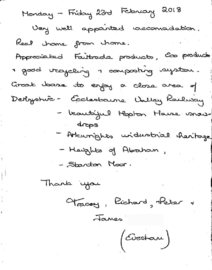 Monday - Friday 23rd February 2018
Very well appointed accomodation.
Real home from home.
Appreciated Fairtrade products, Eco products
+ good recycling + composting system.
Great base to enjoy a close area of
Derbyshire - Ecclesbourne Valley Railway
- beautiful Hopton House snow-
drops
- Arkwrights industrial heritage
- Heights of Abraham,
- Stanton Moor.
Thank you
Tracey, Richard, Peter +
James
(Evesham)